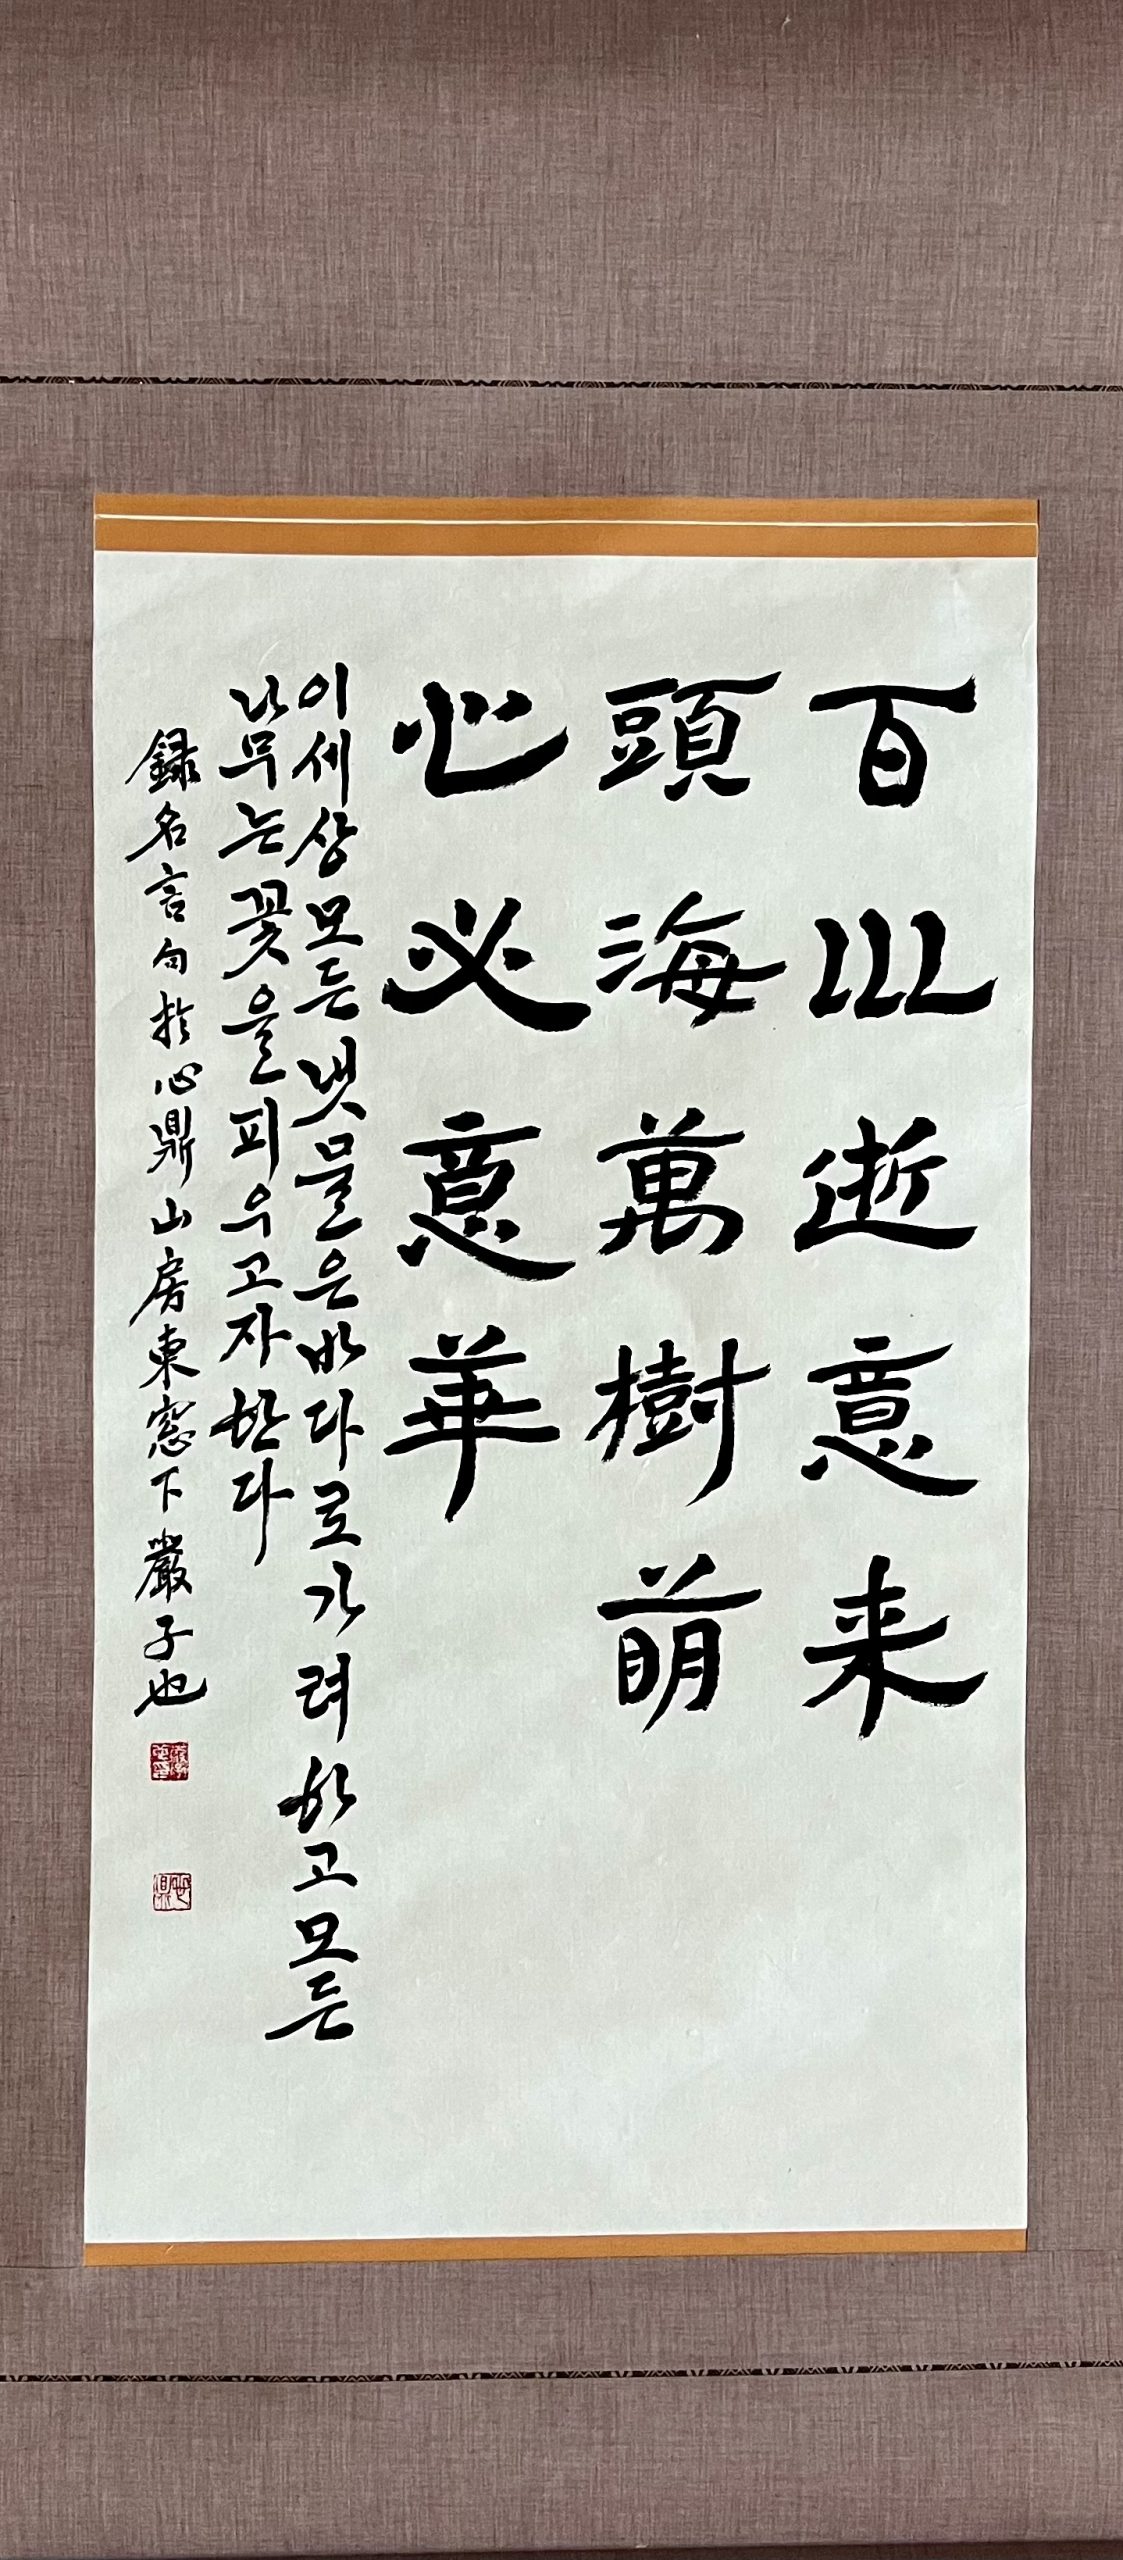 百川逝意来
頭海萬樹萌
心必意華
이세상모든냇물은바다로가려하고모든
나무는꽃을피우고자한다
録名言句於心鼎山房東窓下嚴子也